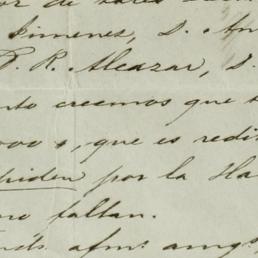 or de
Jimenez, D. An
P. R. Alcazar, D.
nto creemos que
000 $, que es redi
piden por la Ha
no faltan.
afmos. amigs,